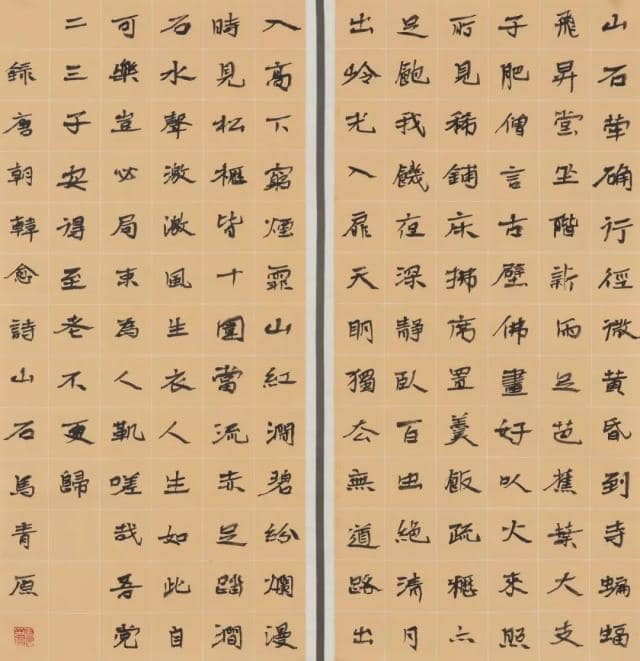 山石犖确行徑微黃昏到寺蝙蝠
飛昇堂坐階新雨足芭蕉葉大支
子肥僧言古壁佛畫好以火來照
所見稀鋪床拂席置羹飯疏糲亦
足飽我饑夜深靜臥百虫絕清月
出岭光入扉天明獨去無道路出
入高下窮煙霏山紅澗碧紛爛漫
時見松櫪皆十圍當流赤足蹋澗
石水聲激激風生衣人生如此自
可樂豈必局束為人鞿嗟哉吾党
二三子安得至老不更歸
錄唐朝韓愈詩山石馬青原